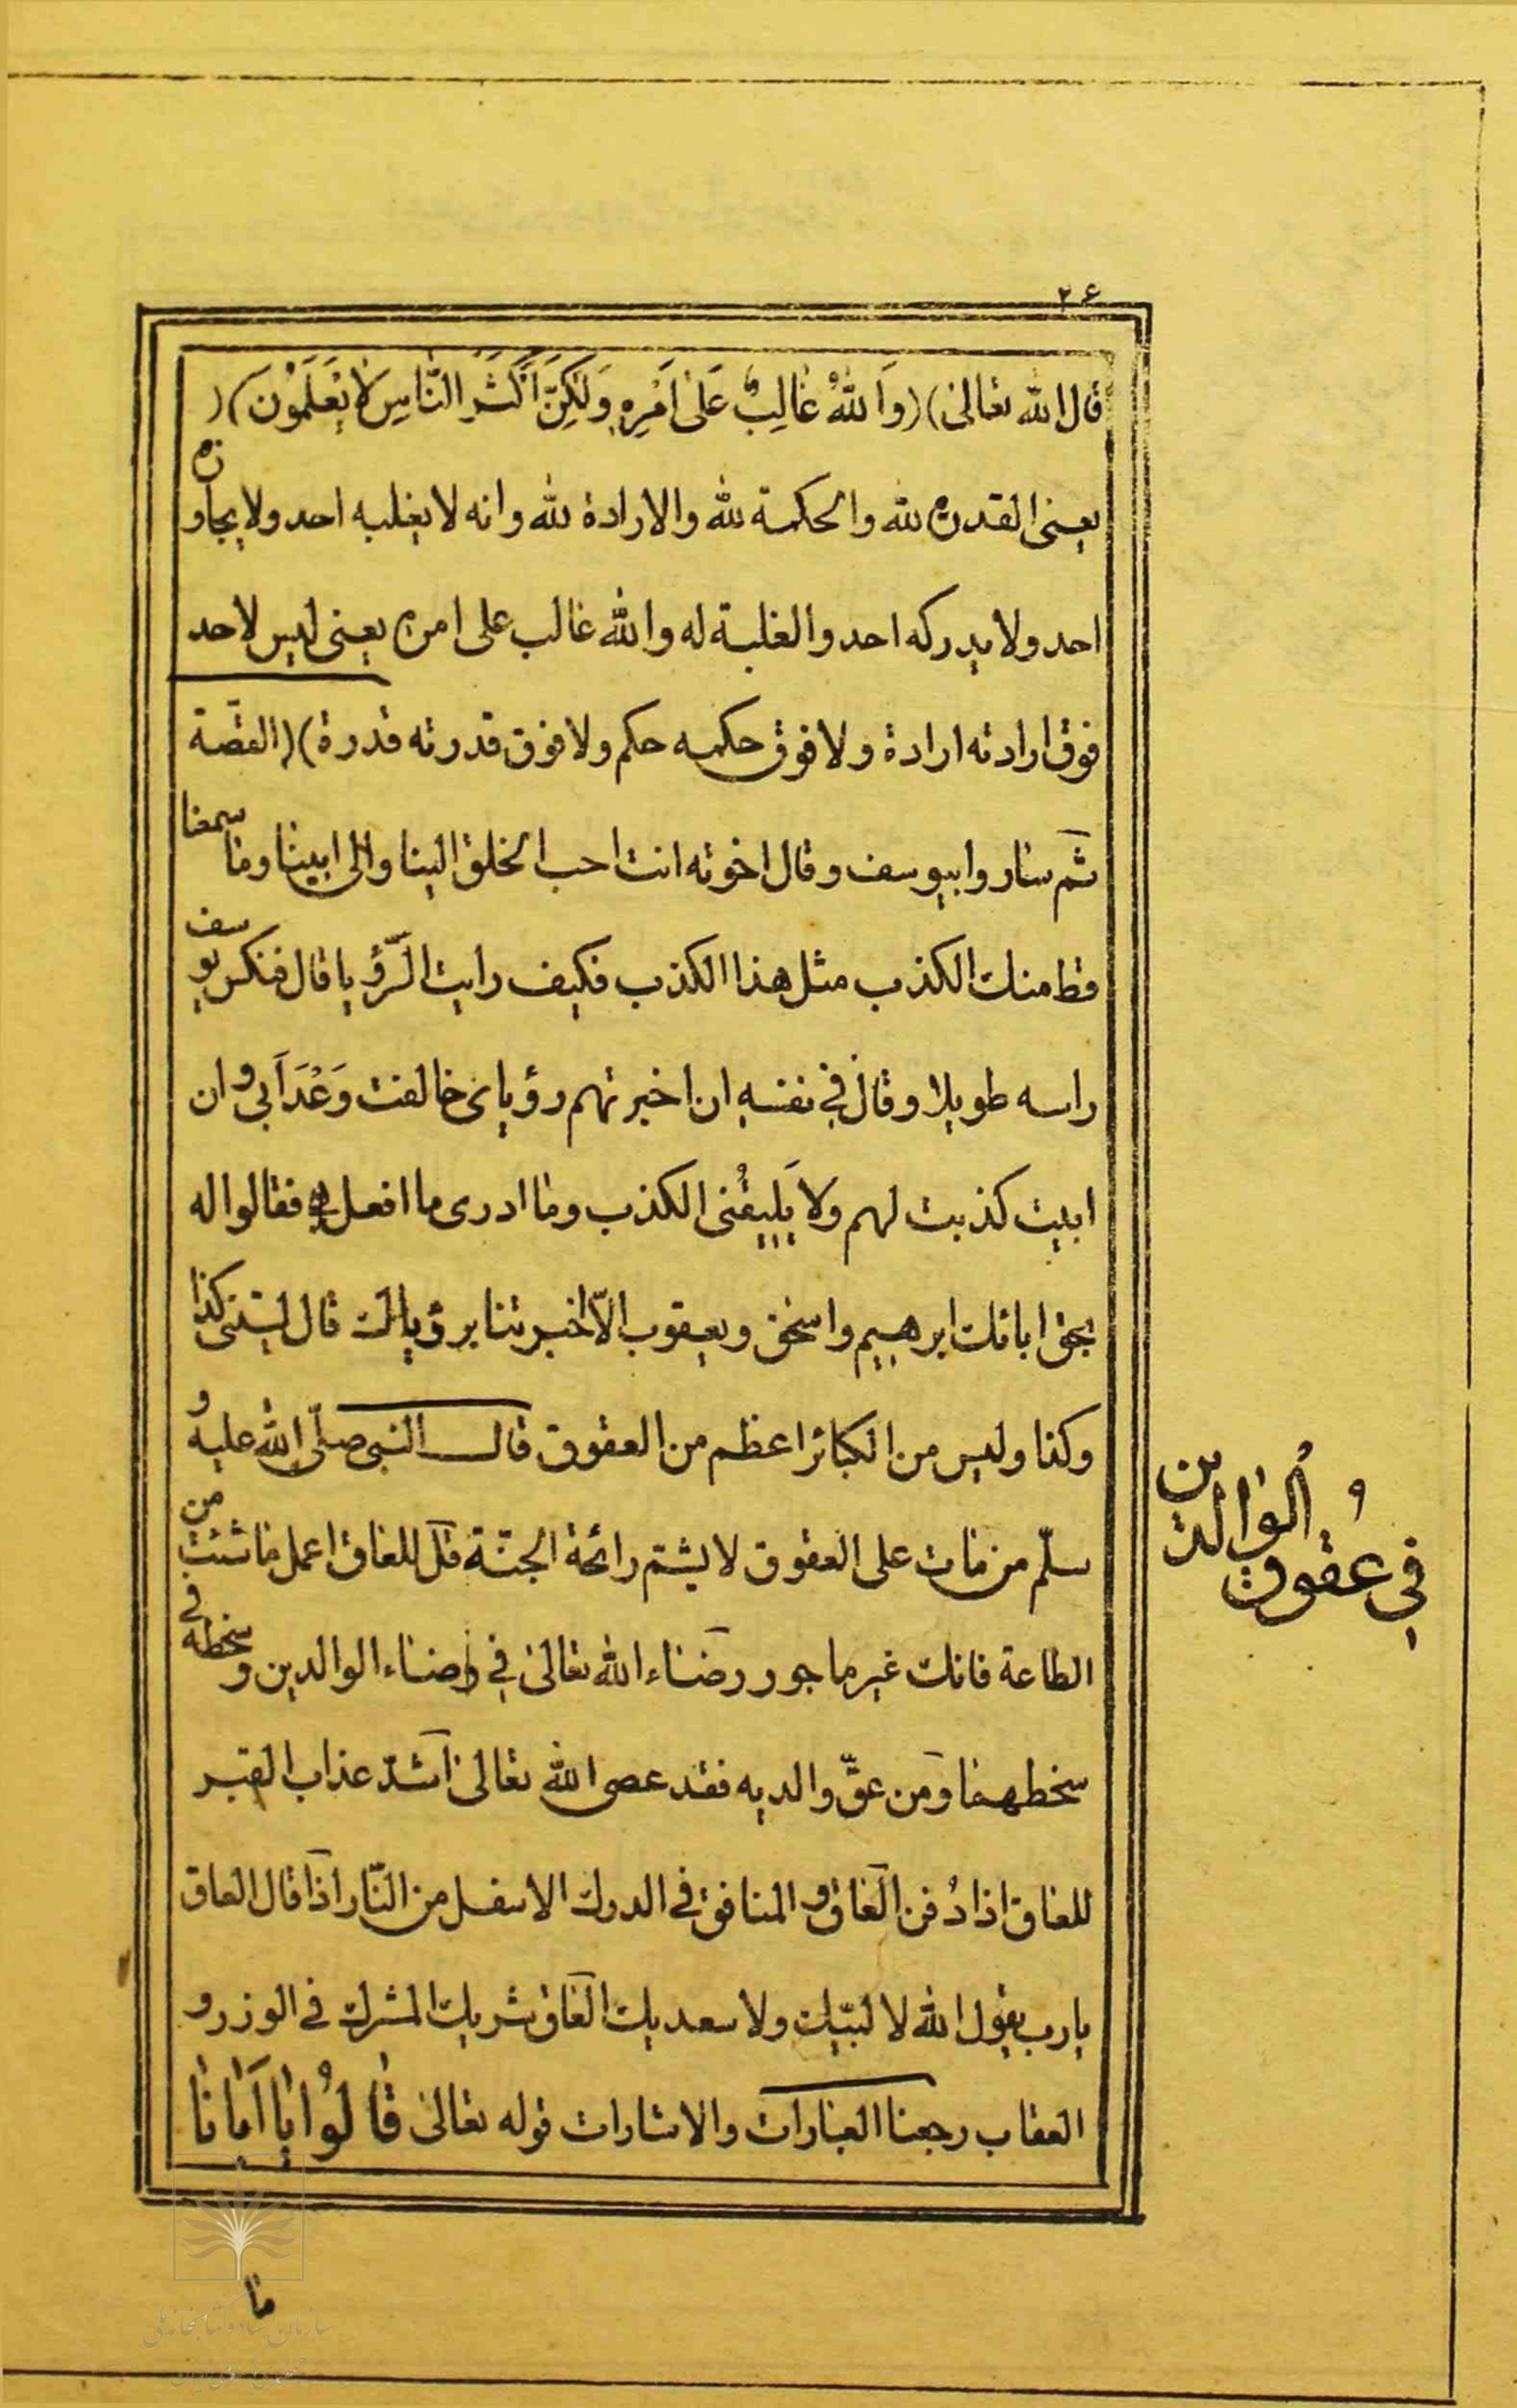 ۲۶
قال الله تعالى)(وَاللهُ غالِبٌ عَلى اَمْرِهِ وَلكِنَّ اَكْثَرَ النّاسِ لا يَعْلَمُونَ)(
يعنى القدرة لله والحكمة لله والارادة لله وانه لا يغلبه احد ولا يجاوزه
احد ولا يدركه احد والغلبة له والله غالب على امره يعنى ليس لاحد
فوق ارادته ارادة ولا فوق حكمه حكم ولا فوق قدرته قدرة)(القصّة
ثم ساروا بيوسف وقال اخوته انت احب الخلق الينا والى ابينا وما سمعنا
قط منك الكذب مثل هذا الكذب فكيف رايت الرّؤيا قال فنكس يوسف
راسه طويلا وقال في نفسه ان اخبرتهم رؤياى خالفت وَعْدَ اَبى وان
ابيت كذبت لهم ولا يَليقُنى الكذب وما ادرى ما افعل فقالوا له
بحق ابائك ابرهيم واسحق ويعقوب الّا اخبرتنا برؤياك قال ليتنى كذا
وكذا وليس من الكبائر اعظم من العقوق قال النبى صلّى الله عليه و
سلّم من مات على العقوق لا يشتم رائحة الجنّة قل للعاق اعمل ما شئت من
الطاعة فانك غير ماجور رضاء الله تعالى في رضاء الوالدين وسخطه في
سخطهما ومن عقّ والديه فقد عصى الله تعالى اشدّ عذاب القبر
للعاق اذا دُفن العاق والمنافق في الدرك الاسفل من النّار اذا قال العاق
يا رب يقول الله لا لبّيك ولا سعديك العاق شريك المشرك في الوزر و
العقاب رجعنا العبارات والاشارات قوله تعالى قالُوا يا اَبانا
في عُقوق اُلوالدين
ما
سازمان اسناد و کتابخانه ملی